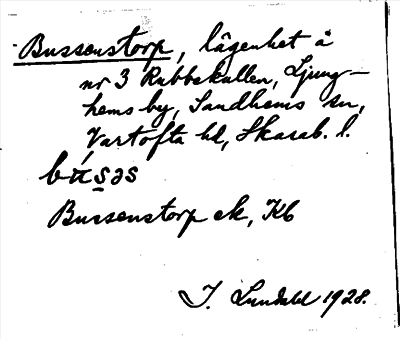 Bussenstorp, lägenhet å
nr 3 Rabbakullen, Ljung-
hems by, Sandhems sn,
Vartofta hd, Skarab. l.
bu̇səs
Bussenstorp ek, Kb
I. Lundahl 1928.